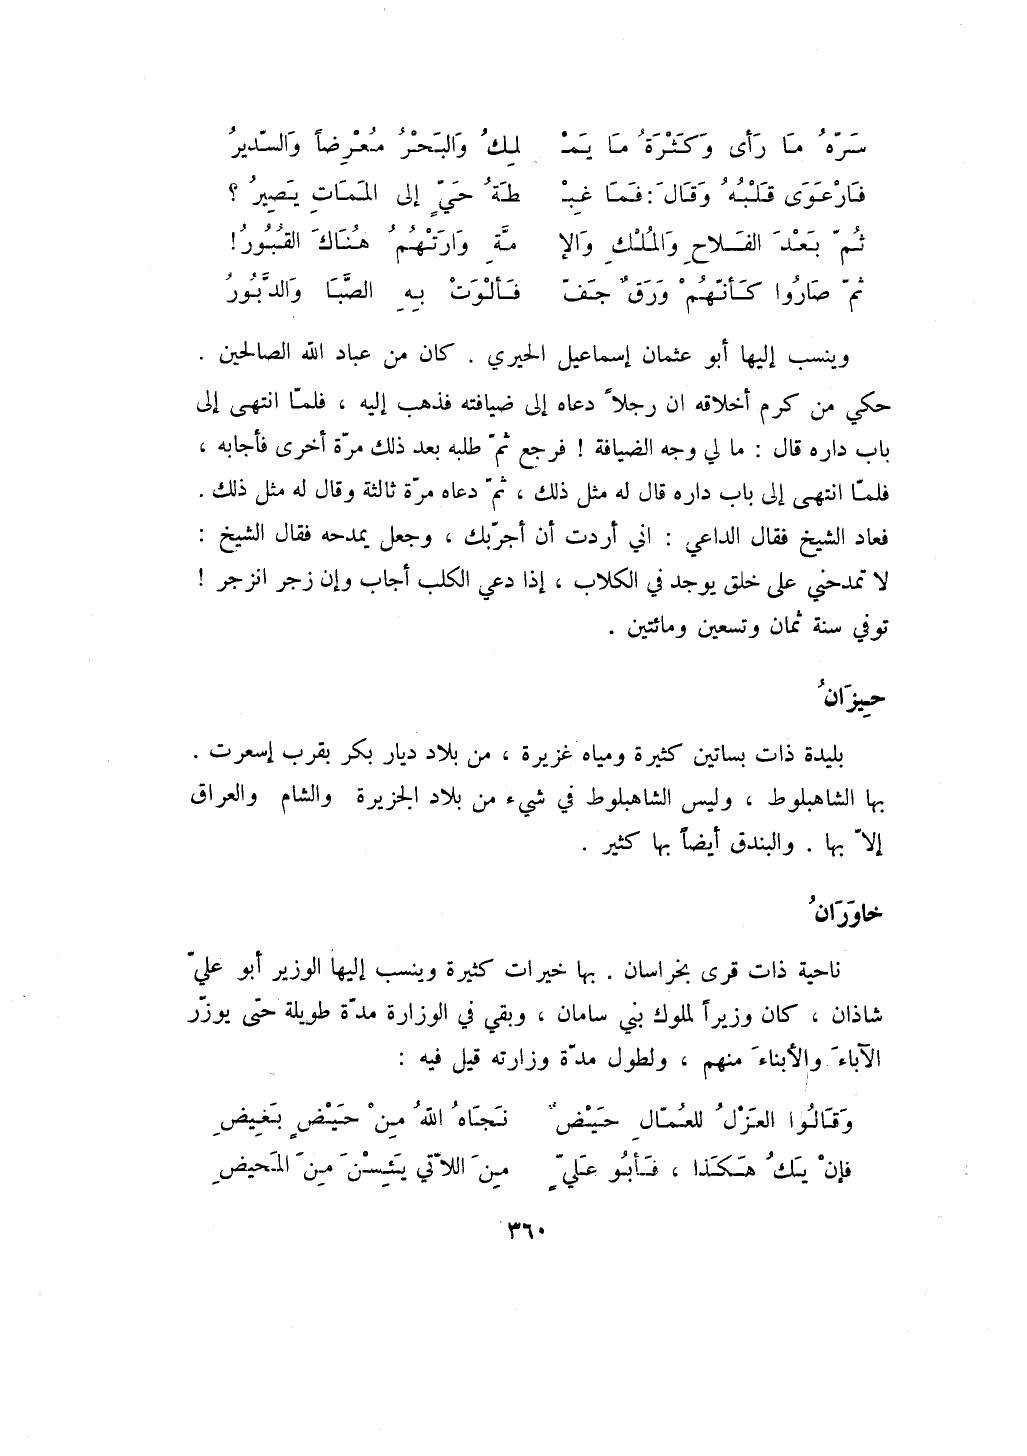 سَرّهُ مَا رَأى وَكَثْرَةُ مَا يَمْـ لِكُ وَالبَحْرُ مُعْرِضاً وَالسّديرُ
فَارْعَوَى قَلْبُهُ وَقَالَ : فَمَا غِبْـ طَةُ حَيٍّ إلى المَمَاتِ يَصِيرُ ؟
ثُمّ بَعْدَ الفَلاحِ وَالمُلْكِ وَالإ مّةِ وَارَتْهُمُ هُنَاكَ القُبُورُ !
ثمّ صَارُوا كَأنّهُمْ وَرَقٌ جَفّ فَألْوَتْ بِهِ الصَّبَا وَالدَّبُورُ
وينسب إليها أبو عثمان إسماعيل الحيري . كان من عباد الله الصالحين .
حكي من كرم أخلاقه ان رجلاً دعاه إلى ضيافته فذهب إليه ، فلمّا انتهى إلى
باب داره قال : ما لي وجه الضيافة ! فرجع ثمّ طلبه بعد ذلك مرّة أخرى فأجابه ،
فلمّا انتهى إلى باب داره قال له مثل ذلك ، ثمّ دعاه مرّة ثالثة وقال له مثل ذلك .
فعاد الشيخ فقال الداعي : اني أردت أن أجرّبك ، وجعل يمدحه فقال الشيخ :
لا تمدحني على خلق يوجد في الكلاب ، إذا دعي الكلب أجاب وإن زجر انزجر !
توفي سنة ثمان وتسعين ومائتين .
حِيزَانُ
بليدة ذات بساتين كثيرة ومياه غزيرة ، من بلاد ديار بكر بقرب إسعرت .
بها الشاهبلوط ، وليس الشاهبلوط في شيء من بلاد الجزيرة والشام والعراق
إلاّ بها . والبندق أيضاً بها كثير .
خاوَرَانُ
ناحية ذات قرى بخراسان . بها خيرات كثيرة وينسب إليها الوزير أبو عليّ
شاذان ، كان وزيراً لملوك بني سامان ، وبقي في الوزارة مدّة طويلة حتى يوزّر
الآباءَ والأبناءَ منهم ، ولطول مدّة وزارته قيل فيه :
وَقَالُوا العَزْلُ للعُمّالِ حَيْضٌ نَجَاهُ اللهُ مِنْ حَيْضٍ بَغِيضِ
فإنْ يَكُ هَكَذا ، فَأبُو عَليٍّ مِنَ اللاّتي يَئِسْنَ مِنَ المَحيضِ
٣٦٠